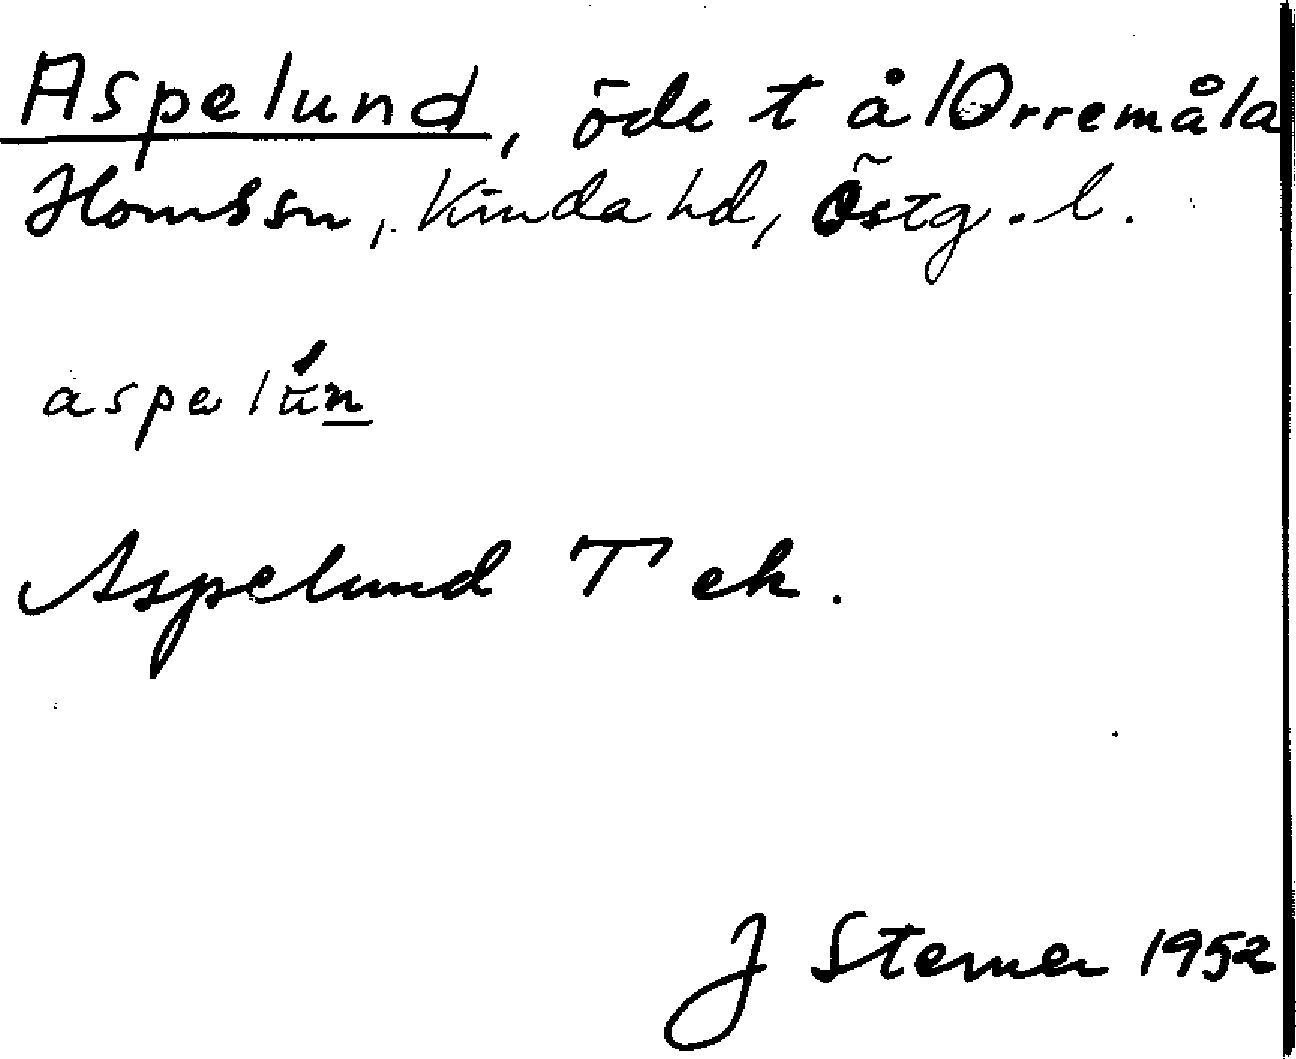 Aspelund, öde t å 1 Orremåla
Horns sn, Kinda hd, Östg. l.
aspelún
Aspelund T ek.
J Sterner 1952